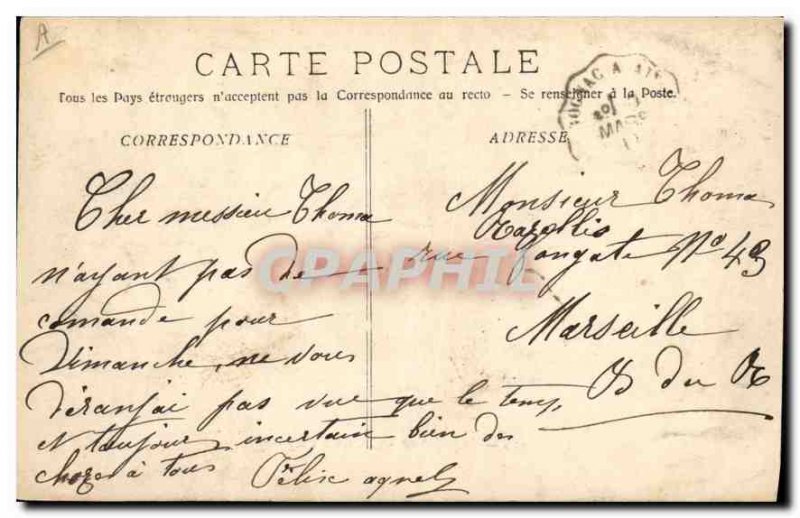 CARTE POSTALE
Tous les Pays étrangers n'acceptent pas la Correspondance au recto - Se renseigner à la Poste.
CORRESPONDANCE
Cher messieu Thoma
n'ayant pas de
comande pour
Dimanche, ne vous
déranjai pas vue que le temp
et toujour incertain bien des
choze à tous Félix agnel
ADRESSE
Monsieur Thoma
rue Fongate No 43
Marseille
B du R
MARS
CPAPHIL